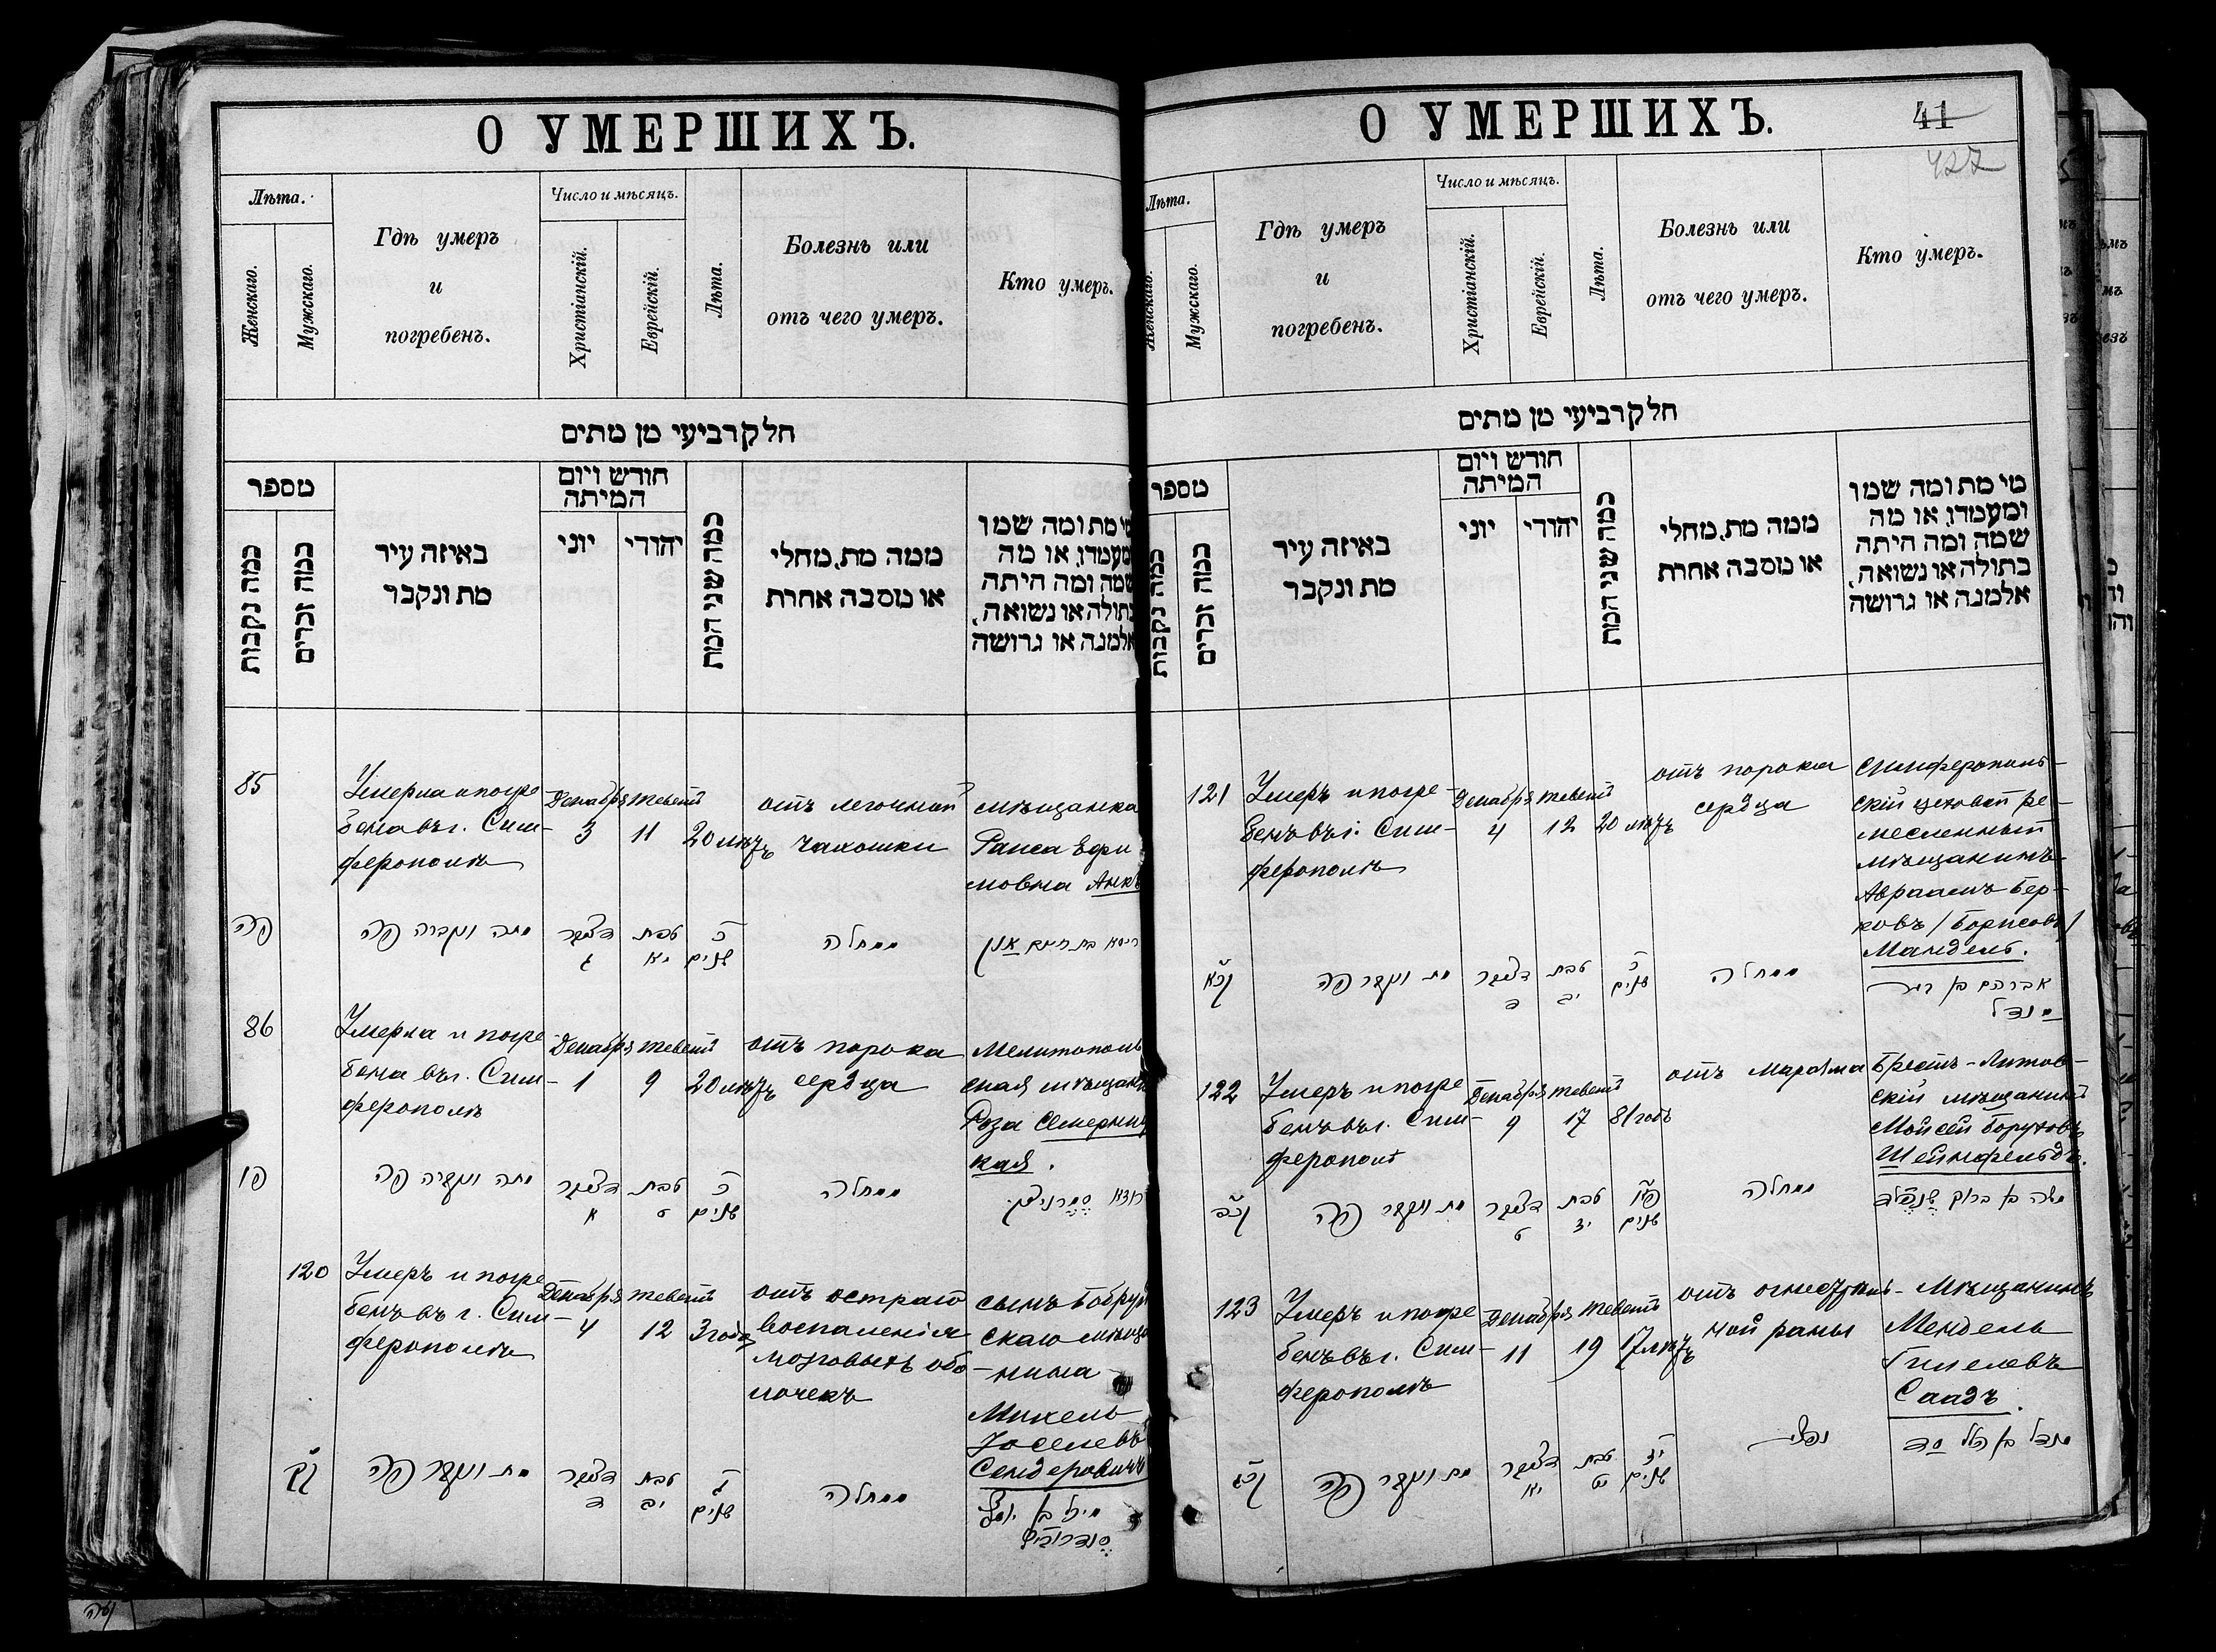 О УМЕРШИХЪ.
Лѣта.
Число и мѣсяцъ.
Женскаго.
Мужскаго.
Гдѣ умеръ
и
погребенъ.
Христіанскій.
Еврейскій.
Лѣта.
Болезнь или
отъ чего умеръ.
Кто умеръ.
חלק רביעי מן מתים
מספר
חודש ויום
המיתה
כמה נקבות
כמה זכרים
באיזה עיר
מת ונקבר
יוני
יהודי
כמה שני המת
ממה מת, מחלי
או מסבה אחרת
מי מת ומה שמו
ומעמדו, או מה
שמה ומה היתה
בתולה או נשואה,
אלמנה או גרושה
85
Умерла и погре-
бена въ г. Сим-
ферополѣ
Декабря
3
тевеша
11
20 лѣтъ
отъ легочной
чахотки
мѣщанка
Раиса Ефи
мовна
פה
מתה ונקברה פה
דצמבר
ג
טבת
יא
כ
שנים
ממחלה
86
Умерла и погре
бена въ г. Сим-
ферополѣ
Декабря
1
тевеша
9
20 лѣтъ
отъ порока
сердца
Мелитополь
ская мѣщанк
Роза Семерниц
кая.
פו
מתה ונקברה פה
דצמבר
א
טבת
ט
כ
שנים
ממחלה
120
Умеръ и погре
бенъ въ г. Сим-
ферополѣ
Декабря
4
тевеша
12
3 года
отъ остраго
воспаленія
мозговыхъ обо-
лочекъ
сынъ Бобруй
скаго мѣща
нина
Михель
Іоселевъ
Сендеровичъ
קך
מת ונקבר פה
דצמבר
ד
טבת
יב
ג
שנים
ממחלה
О УМЕРШИХЪ.
41
427
Лѣта.
Число и мѣсяцъ.
Женскаго.
Мужскаго.
Гдѣ умеръ
и
погребенъ.
Христіанскій.
Еврейскій.
Лѣта.
Болезнь или
отъ чего умеръ.
Кто умеръ.
חלק רביעי מן מתים
מספר
חודש ויום
המיתה
כמה נקבות
כמה זכרים
באיזה עיר
מת ונקבר
יוני
יהודי
כמה שני המת
ממה מת, מחלי
או מסבה אחרת
מי מת ומה שמו
ומעמדו, או מה
שמה ומה היתה
בתולה או נשואה,
אלמנה או גרושה
121
Умеръ и погре-
бенъ въ г. Сим-
ферополѣ
Декабря
4
тевеша
12
20 лѣтъ
отъ порока
сердца
Симферополь-
скій цеховой ре-
месленный
мѣщанинъ
Авраамъ Бер-
ковъ /Борисовъ/
Мандель.
קכא
מת ונקבר פה
דצמבר
ד
טבת
יב
כ
שנים
ממחלה
אברהם בן
מנדל
122
Умеръ и погре
бенъ въ г. Сим-
ферополѣ
Декабря
9
тевеша
17
81 годъ
отъ маразма
Брестъ-Литов-
скій мѣщанинъ
Мойсей Боруховъ
Шейнфельдъ.
קכב
מת ונקבר פה
דצמבר
ט
טבת
יז
שנים
ממחלה
משה בן ברוך
123
Умеръ и погре
бенъ въ г. Сим-
ферополѣ
Декабря
11
тевеша
19
17 лѣтъ
отъ огнестрѣль-
ной раны
Мѣщанинъ
Мендель
Гилелевъ
Саадъ.
קכג
מת ונקבר פה
דצמבר
יא
טבת
יט
יז
שנים
מנדל בן הלל סד